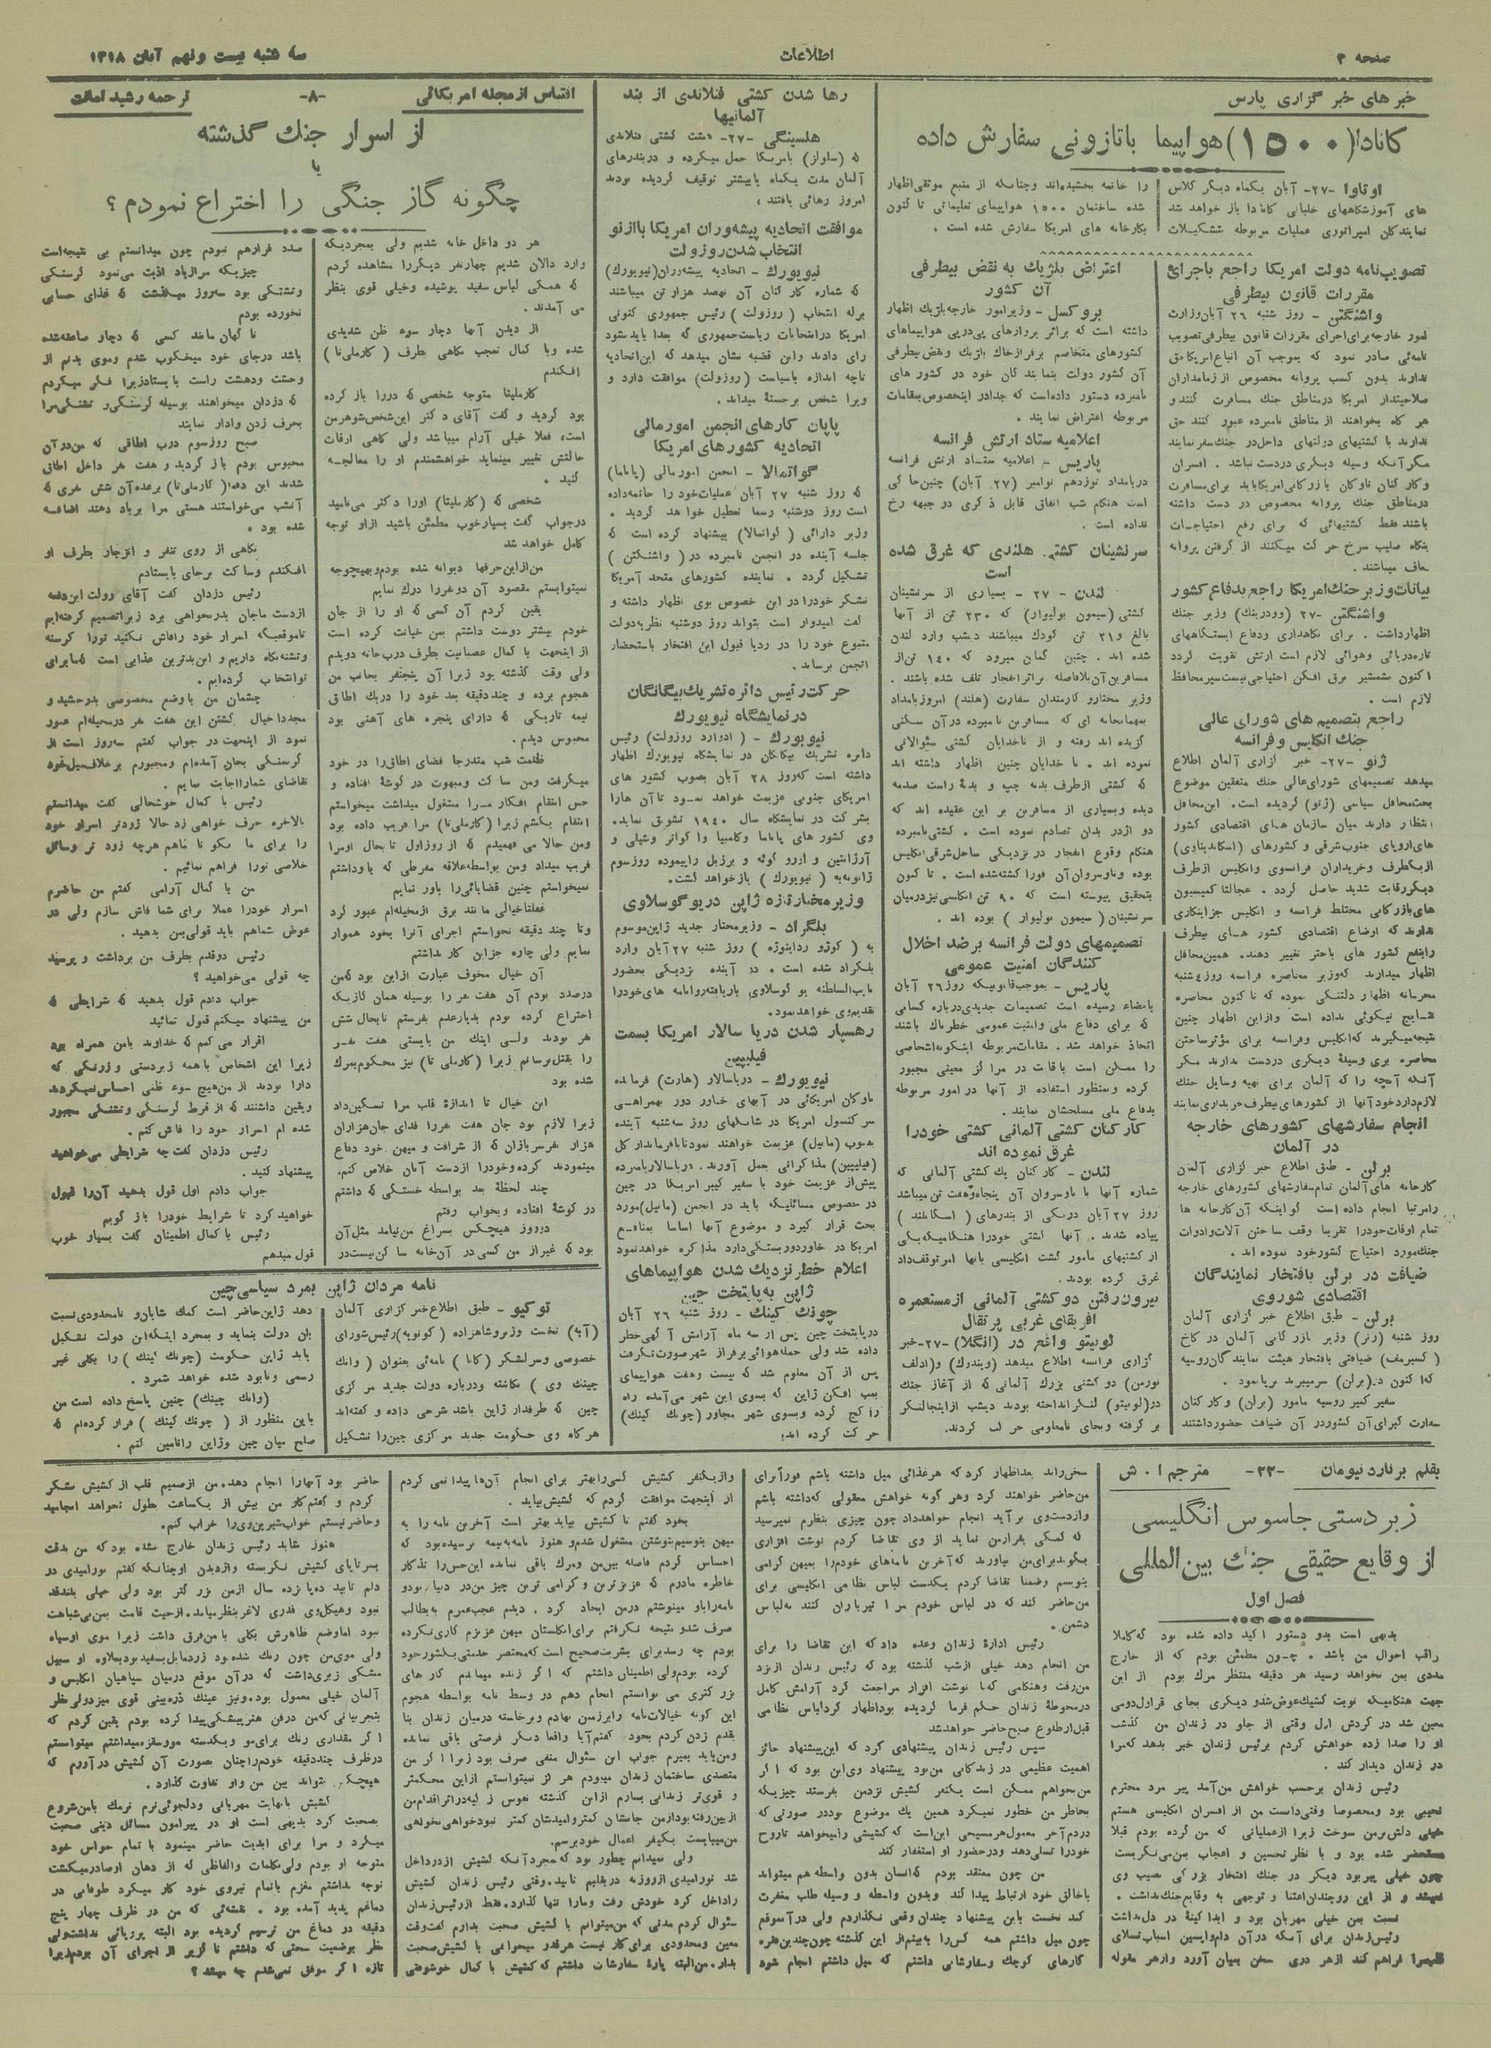 صفحه ۲
اطلاعات
سه شنبه بیست و نهم آبان ۱۳۱۸
خبر های خبر گزاری پارس
کانادا (۱۵۰۰) هواپیما باتازونی سفارش داده
اوتاوا -۲۷- آبان یکماه دیگر کلاس
های آموزشگاههای خلبانی کانادا باز خواهد شد
نمایندگان امپراتوری عملیات مربوطه بتشکیلات
را خاتمه بخشیده‌اند وچنانکه از منبع موثقی اظهار
شده ساختمان ۱۵۰۰ هواپیمای تعلیماتی تا کنون
بکارخانه های امریکا سفارش شده است .
تصویب‌نامه دولت امریکا راجع باجرای
مقررات قانون بیطرفی
واشنگتن - روز شنبه ۲۶ آبان وزارت
امور خارجه برای اجرای مقررات قانون بیطرفی تصویب
نامه‌ئی صادر نمود که بموجب آن اتباع امریکا حق
ندارند بدون کسب پروانه مخصوص از زمامداران
صلاحیتدار امریکا درمناطق جنک مسافرت کنند و
هر گاه بخواهند از مناطق نامبرده عبور کنند حق
ندارند با کشتیهای دولتهای داخل در جنک سفر نمایند
مگر آنکه وسیله دیگری دردست نباشد . افسران
و کار کنان ناوکان بازرگانی امریکا باید برای مسافرت
درمناطق جنک پروانه مخصوص در دست داشته
باشند فقط کشتیهائی که برای رفع احتیاجات
بنگاه صلیب سرخ حرکت میکنند از گرفتن پروانه
معاف میباشند .
بیانات وزیر جنک امریکا راجع بدفاع کشور
واشنگتن -۲۷ (وودرینک) وزیر جنک
اظهارداشت . برای نگاهداری ودفاع ایستگاههای
تازه دریائی وهوائی لازم است ارتش تقویت گردد
اکنون بشمشیر برق افکن احتیاجی نیست سپر محافظ
لازم است .
راجع بتصمیم های شورای عالی
جنک انگلیس و فرانسه
ژنو -۲۷- خبر گزاری آلمان اطلاع
میدهد تصمیمهای شورای عالی جنک متفقین موضوع
بحث محافل سیاسی (ژنو) گردیده است. این محافل
انتظار دارند میان سازمان های اقتصادی کشور
های اروپای جنوب شرقی و کشورهای (اسکاندیناوی)
ازیکطرف وخریداران فرانسوی وانگلیس ازطرف
دیگر رقابت شدید حاصل گردد . عجالتا کمیسیون
های بازرگانی مختلط فرانسه و انگلیس جز ابتکاری
ندارند که اوضاع اقتصادی کشور های بیطرف
را بنفع کشور های باختر تغییر دهند. همین محافل
اظهار میدارند که وزیر محاصره فرانسه روز ۴ شنبه
محرمانه اظهار دلتنگی نموده که تا کنون محاصره
نتایج نیکوئی نداده است و از این اظهار چنین
نتیجه میگیرند که انگلیس وفرانسه برای مؤثر ساختن
محاصره بری وسیلهٔ دیگری دردست ندارند مگر
آنکه آنچه را که آلمان برای تهیه وسایل جنک
لازم دارد خود آنها از کشورهای بیطرف خریداری نمایند
انجام سفارشهای کشورهای خارجه
در آلمان
برلن - طبق اطلاع خبر گزاری آلمان
کارخانه های آلمان تمام سفارشهای کشورهای خارجه
رامرتبا انجام داده است گو اینکه آن کارخانه ها
تمام اوقات خودرا تقریبا وقف ساختن آلات و ادوات
جنک مورد احتیاج کشور خود نموده اند .
ضیافت در برلن بافتخار نمایندگان
اقتصادی شوروی
برلن - طبق اطلاع خبر گزاری آلمان
روز شنبه (دنر) وزیر بازرگانی آلمان در کاخ
ضیافتی بافتخار هیئت نمایندگان روسیه
که اکنون در (برلن) سرمیبرند برپا نمود .
سفیر کبیر روسیه مامور (برلن) و کار کنان
سفارت کبرای آن کشور در آن ضیافت حضور داشتند
اعتراض بلژیک به نقض بیطرفی
آن کشور
بروکسل - وزیر امور خارجه بلژیک اظهار
داشته است که براثر پروازهای پی‌درپی هواپیماهای
کشورهای متخاصم بر فراز خاک بلژیک ونقض بیطرفی
آن کشور دولت بنمایندگان خود در کشور های
نامبرده دستور داده است که جدا در اینخصوص بمقامات
مربوطه اعتراض نمایند .
اعلامیه ستاد ارتش فرانسه
پاریس - اعلامیه ستاد ارتش فرانسه
دربامداد نوزدهم نوامبر (۲۷ آبان) چنین حاکی
است هنگام شب اتفاق قابل ذکری در جبهه رخ
نداده است .
سرنشینان کشتی هلندی که غرق شده
است
لندن - ۲۷ - بسیاری از سرنشینان
کشتی (سیمون بولیوار) که ۲۳۰ تن از آنها
بالغ و ۲۱ تن کودک میباشند دیشب وارد لندن
شده اند . چنین گمان میرود که ۱۴۰ تن از
مسافرین آن بلافاصله براثر انفجار تلف شده باشند .
وزیر مختار و کارمندان سفارت (هلند) امروز بامداد
بمهمانخانه ای که مسافرین نامبرده در آن سکنی
گزیده اند رفته و از ناخدایان کشتی سئوالاتی
نموده اند . ناخدایان چنین اظهار داشته اند
که کشتی از طرف بدنه چپ و بدنهٔ راست صدمه
دیده و بسیاری از مسافرین بر این عقیده اند که
دو اژدر بدان تصادم نموده است . کشتی نامبرده
هنگام وقوع انفجار در نزدیکی ساحل شرقی انگلیس
بوده و ناوسروان آن فورا کشته شده است . تا کنون
بتحقیق پیوسته است که ۹۰ تن انگلیسی نیز درمیان
سرنشینان (سیمون بولیوار) بوده اند .
تصمیمهای دولت فرانسه برضد اخلال
کنندگان امنیت عمومی
پاریس - بموجب قانونیکه روز ۲۶ آبان
بامضاء رسیده است تصمیمات جدیدی درباره کسانی
که برای دفاع ملی و امنیت عمومی خطرناک باشند
اتخاذ خواهد شد . مقامات مربوطه اینگونه اشخاصی
را ممکن است باقامت در مراکز معینی مجبور
کرده و بمنظور استفاده از آنها در امور مربوطه
بدفاع ملی مسلحشان نمایند .
کارکنان کشتی آلمانی کشتی خودرا
غرق نموده اند
لندن - کارکنان یک کشتی آلمانی که
شماره آنها با ناوسروان آن پنجاه وهفت تن میباشد
روز ۲۷ آبان دریکی از بندرهای (اسکاتلند)
پیاده شدند . آنها کشتی خودرا هنگامیکه یکی
از کشتیهای مامور گشت انگلیسی بانها امر توقف داد
غرق کرده بودند .
بیرون رفتن دو کشتی آلمانی از مستعمره
افریقای غربی پرتقال
لوبیتو واقع در (انگلا) -۲۷- خبر
گزاری فرانسه اطلاع میدهد (ویندوک) و (ادلف
نورمن) دو کشتی بزرگ آلمانی که از آغاز جنک
در (لوبیتو) لنگر انداخته بودند دیشب از اینجا لنگر
بر گرفته و بجای نامعلومی حرکت کردند.
رها شدن کشتی فنلاندی از بند
آلمانیها
هلسینگی -۲۷- هشت کشتی فنلاندی
که (سلولز) بامریکا حمل میکرده و دربندرهای
آلمان مدت یکماه یا بیشتر توقیف گردیده بودند
امروز رهائی یافتند .
موافقت اتحادیه پیشه‌وران امریکا بااز نو
انتخاب شدن روزولت
نیویورک - اتحادیه پیشه‌وران (نیویورک)
که شماره کار کنان آن نهصد هزار تن میباشند
برله انتخاب (روزولت) رئیس جمهوری کنونی
امریکا در انتخابات ریاست‌جمهوری که بعدا باید بشود
رای دادند و این قضیه نشان میدهد که این اتحادیه
تاچه اندازه باسیاست (روزولت) موافقت دارد و
ویرا شخص برجستهٔ میداند .
پایان کارهای انجمن امور مالی
اتحادیه کشورهای امریکا
گواتمالا - انجمن امور مالی (پاناما)
که روز شنبه ۲۷ آبان عملیات خود را خاتمه داده
است روز دوشنبه رسما تعطیل خواهد گردید .
وزیر دارائی (گواتمالا) پیشنهاد کرده است که
جلسه آینده در انجمن نامبرده در (واشنگتن)
تشکیل گردد . نماینده کشورهای متحد آمریکا
تشکر خودرا در این خصوص بوی اظهار داشته و
گفت امیدوار است بتواند روز دوشنبه نظریه دولت
متبوع خود را در زمینه قبول این افتخار باستحضار
انجمن برساند .
حرکت رئیس دائره تشریک بیگانگان
در نمایشگاه نیویورک
نیویورک - (ادوارد روزولت) رئیس
دائره تشریک بیگانگان در نمایشگاه نیویورک اظهار
داشته است که روز ۲۸ آبان بصوب کشور های
امریکای جنوبی عزیمت خواهد نمود تا آن هارا
بشرکت در نمایشگاه سال ۱۹۴۰ تشویق نماید.
وی کشور های پاناما و کلمبیا را کواتر وشیلی و
آرژانتین و ارو گوئه و برزیل را پیموده روز سوم
ژانویه به (نیویورک) باز خواهد گشت .
وزیر مختار تازه ژاپن در یوگوسلاوی
بلگراد - وزیر مختار جدید ژاپن موسوم
به روز شنبه ۲۷ آبان وارد
بلگراد شده است . در آینده نزدیکی بحضور
نایب‌السلطنه یو گوسلاوی باریافته و نامه های خودرا
تقدیم وی خواهد نمود.
رهسپار شدن دریا سالار امریکا بسمت
فیلیپین
نیویورک - دریاسالار (هارت) فرمانده
ناوکان امریکائی در آبهای خاور دور بهمراهی
سرکنسول امریکا در شانگهای روز سه‌شنبه آینده
بصوب (مانیل) عزیمت خواهند نمود تا با فرماندار کل
(فیلیپین) مذاکراتی بعمل آورند. دریاسالار نامبرده
پیش از عزیمت خود با سفیر کبیر امریکا در چین
در خصوص مسائلیکه باید در انجمن (مانیل) مورد
بحث قرار گیرد و موضوع آنها اساسا بمنافع
امریکا در خاور دور بستگی دارد مذاکره خواهد نمود
اعلام خطر نزدیک شدن هواپیماهای
ژاپن به پایتخت چین
چونک کینک - روز شنبه ۲۶ آبان
درپایتخت چین پس از سه ماه آرامش آگهی خطر
داده شد ولی حمله هوائی بر فراز شهر صورت نگرفت
پس از آن معلوم شد که بیست وهفت هواپیمای
بمب افکن ژاپن که بسوی این شهر می‌آمدند راه
را کج کرده وبسوی شهر مجاور (چونک کینک)
حرکت کرده اند .
اقتباس از مجله امریکائی
-۸-
ترجمه رشید امانت
از اسرار جنک گذشته
یا
چگونه گاز جنگی را اختراع نمودم ؟
هر دو داخل خانه شدیم ولی بمجردیکه
وارد دالان شدیم چهار نفر دیگر را مشاهده کردم
که همگی لباس سفید پوشیده وخیلی قوی بنظر
می آمدند .
از دیدن آنها دچار سوء ظن شدیدی
شده وبا کمال تعجب نگاهی بطرف (کارملی‌تا)
افکندم
کارملیتا متوجه شخصی که دررا باز کرده
بود گردید و گفت آقای دکتر این شخص شوهر من
است، فعلا خیلی آرام میباشد ولی گاهی اوقات
حالتش تغییر مینماید خواهشمندم او را معالجه
کنید .
شخصی که (کارملیتا) اورا دکتر می‌نامید
درجواب گفت بسیار خوب مطمئن باشید از او توجه
کامل خواهد شد
من از این حرفها دیوانه شده بودم و بهیچوجه
نمیتوانستم مقصود آن دو نفر را درک نمایم
یقین کردم آن کسی که او را از جان
خودم بیشتر دوست داشتم بمن خیانت کرده است
از اینجهت با کمال عصبانیت بطرف درب خانه دویدم
ولی وقت گذشته بود زیرا آن پنج‌نفر بجانب من
هجوم برده و چند دقیقه بعد خود را دریک اطاق
نیمه تاریکی که دارای پنجره های آهنی بود
محبوس دیدم .
ظلمت شب متدرجا فضای اطاق را در خود
میگرفت ومن ساکت و مبهوت در گوشهٔ افتاده و
حس انتقام افکار مرا مشغول میداشت میخواستم
انتقام بکشم زیرا (کارملی‌تا) مرا فریب داده بود
ومن حالا می فهمیدم که از روز اول تا بحال اومرا
فریب میداد ومن بواسطه علاقه مفرطی که باو داشتم
نمیخواستم چنین قضایائی را باور نمایم
غفلتا خیالی مانند برق از مخیله‌ام عبور کرد
وتا چند دقیقه نخواستم اجرای آنرا بخود هموار
نمایم ولی چاره جز این کار نداشتم
آن خیال مخوف عبارت از این بود که من
درصدد بودم آن هفت نفر را بوسیله همان گازیکه
اختراع کرده بودم بدیار عدم بفرستم تا بحال شش
نفر بودند ولی اینک من بایستی هفت نفر
را بقتل برسانم زیرا (کارملی تا) نیز محکوم بمرگ
شده بود
این خیال تا اندازهٔ قلب مرا تسکین داد
زیرا لازم بود جان هفت نفر را فدای جان هزاران
هزار نفر سربازان که از شرافت و میهن خود دفاع
مینمودند کرده و خود را از دست آنان خلاص کنم.
چند لحظهٔ بعد بواسطه خستگی که داشتم
در گوشهٔ افتاده و بخواب رفتم
دو روز هیچکس بسراغ من نیامد مثل آن
بود که غیر از من کسی در آن خانه ساکن نیست در
صدد فرار هم نبودم چون میدانستم بی نتیجه است
چیزیکه مرا زیاد اذیت می‌نمود گرسنگی
و تشنگی بود سه روز میگذشت که غذای حسابی
نخورده بودم
ناگهان مانند کسی که دچار صاعقه شده
باشد درجای خود میخکوب شدم وموی بدنم از
وحشت ودهشت راست بایستاد زیرا فکر میکردم
که دزدان میخواهند بوسیله گرسنگی و تشنگی مرا
بحرف زدن وادار نمایند
صبح روز سوم درب اطاقی که من در آن
محبوس بودم باز گردید و هفت نفر داخل اطاق
شدند این دفعه (کارملی‌تا) برعده آن شش نفری که
آتشب می‌خواستند هستی مرا برباد دهند اضافه
شده بود .
نگاهی از روی تنفر و انزجار بطرف او
افکندم وساکت برجای بایستادم
رئیس دزدان گفت آقای رولت این دفعه
ازدست ما جان بدر نخواهی برد زیرا تصمیم گرفته‌ایم
تا موقعیکه اسرار خود رافاش نکنید تو را گرسنه
وتشنه نگاه داریم و این بدترین عذابی است که ما برای
تو انتخاب کرده‌ایم .
چشمان من با وضع مخصوصی بدرخشید و
مجددا خیال کشتن این هفت نفر درمخیله‌ام عبور
نمود از اینجهت در جواب گفتم سه روز است از
گرسنگی بجان آمده‌ام و مجبورم برخلاف میل خود
تقاضای شما را اجابت نمایم .
رئیس با کمال خوشحالی گفت میدانستم
بالاخره حرف خواهی زد حالا زودتر اسرار خود
را برای ما بگو تا ماهم هرچه زود تر وسائل
خلاصی تورا فراهم نمائیم .
من با کمال آرامی گفتم من حاضرم
اسرار خودرا عملا برای شما فاش سازم ولی در
عوض شماهم باید قولی بمن بدهید .
رئیس دو قدم بطرف من برداشت و پرسید
چه قولی می‌خواهید ؟
جواب دادم قول بدهید که شرایطی که
من پیشنهاد میکنم قبول نمائید
اقرار می کنم که خداوند بامن همراه بود
زیرا این اشخاص با همه زبردستی و زرنگی که
دارا بودند از من هیچ سوء ظنی احساس نمیکردند
ویقین داشتند که از فرط گرسنگی و تشنگی مجبور
شده ام اسرار خود را فاش کنم .
رئیس دزدان گفت چه شرایطی می‌خواهید
پیشنهاد کنید .
جواب دادم اول قول بدهید آن را قبول
خواهید کرد تا شرایط خودرا باز گویم
رئیس با کمال اطمینان گفت بسیار خوب
قول میدهم
نامه مردان ژاپن بمرد سیاسی چین
توکیو - طبق اطلاع خبر گزاری آلمان
(آبه) نخست وزیر و شاهزاده (کونویه) رئیس شورای
خصوصی وسر لشکر (کاتا) نامه‌ئی بعنوان (وانک
چینک وی) نگاشته و درباره دولت جدید مرکزی
چین که طرفدار ژاپن باشد شرحی داده و گفته‌اند
هر گاه وی حکومت جدید مرکزی چین را تشکیل
دهد ژاپن حاضر است کمک شایان و نامحدودی نسبت
بان دولت بنماید و بمجرد اینکه این دولت تشکیل
یابد ژاپن حکومت (چونک کینک) را بکلی غیر
رسمی ونابود شده خواهد شمرد .
(وانک چینک) چنین پاسخ داده است من
باین منظور از (چونک کینک) فرار کرده‌ام که
صلح میان چین وژاپن راتامین کنم .
بقلم برنارد نیومان
-۲۲-
مترجم ا . ش
زبردستی جاسوس انگلیسی
از وقایع حقیقی جنک بین‌المللی
فصل اول
بدیهی است بدو دستور اکید داده شده بود که کاملا
راقب احوال من باشد . چون مطمئن بودم که از خارج
مددی بمن نخواهد رسید هر دقیقه منتظر مرک بودم از این
جهت هنگامیکه نوبت کشیک عوض شد و دیگری بجای قراول دومی
معین شد در گردش اول وقتی از جلو در زندان من گذشت
او را صدا زده خواهش کردم برئیس زندان خبر بدهد که مرا
در زندان دیدار کند .
رئیس زندان برحسب خواهش من آمد پیر مرد محترم
نجیبی بود و مخصوصا وقتی دانست من از افسران انگلیسی هستم
خیلی دلش برمن سوخت زیرا از عملیاتی که من کرده بودم قبلا
مستحضر شده بود و با نظر تحسین و اعجاب بمن می‌نگریست
چون خیلی پیر بود دیگر در جنک افتخار بزرگی نصیب وی
نمیشد و از این رو چندان اعتنا و توجهی به وقایع جنک نداشت .
نسبت بمن خیلی مهربان بود و ابدا کینهٔ در دل نداشت
رئیس زندان برای آنکه در آن دم واپسین اسباب تسلای
قلب مرا فراهم کند از هر دری سخن بمیان آورد و از هر مقوله
سخن راند بعد اظهار کرد که هر غذائی میل داشته باشم فورا برای
من حاضر خواهند کرد وهر گونه خواهش معقولی که داشته باشم
واز دست وی برآید انجام خواهد داد چون چیزی بنظرم نمیرسید
که کمکی بفرار من نماید از وی تقاضا کردم نوشت افزاری
بگوید برای من بیاورند که آخرین نامه های خودم را بمیهن گرامی
بنویسم و ضمنا تقاضا کردم یکدست لباس نظامی انگلیسی برای
من حاضر کند که در لباس خودم مرا تیرباران کنند نه لباس
دشمن .
رئیس ادارهٔ زندان وعده داد که این تقاضا را برای
من انجام دهد خیلی از شب گذشته بود که رئیس زندان از نزد
من رفت وهنگامی که با نوشت افزار مراجعت کرد آرامش کامل
در محوطهٔ زندان حکم فرما گردیده بود اظهار کرد لباس نظامی
قبل از طلوع صبح حاضر خواهد شد
سپس رئیس زندان پیشنهادی کرد که این پیشنهاد حائز
اهمیت عظیمی در زندگانی من بود پیشنهاد وی این بود که اگر
من بخواهم ممکن است یکنفر کشیش نزد من بفرستد چیزیکه
بخاطر من خطور نمیکرد همین یک موضوع بود در صورتی که
در دم آخر معمول هر مسیحی این است که کشیشی را میخواهد تا روح
خودرا تسلی دهد و در حضور او استغفار کند
من چون معتقد بودم که انسان بدون واسطه هم میتواند
با خالق خود ارتباط پیدا کند وبدون واسطه و وسیله طلب مغفرت
کند نخست باین پیشنهاد چندان وقعی نگذاردم ولی در آنموقع
چون میل داشتم همه کس را به‌بینم از این گذشته چون چندین فقره
کارهای کوچک و سفارشاتی داشتم که میل داشتم انجام شود
واز یکنفر کشیش کسی را بهتر برای انجام آن‌ها پیدا نمی کردم
از اینجهت موافقت کردم که کشیش بیاید .
بخود گفتم تا کشیش بیاید بهتر است آخرین نامه را به
میهن بنویسم بنوشتن مشغول شدم و هنوز نامه به نیمه نرسیده بود که
احساس کردم فاصله بین من و مرک باقی نمانده این حس را تذکار
خاطره مادرم که عزیزترین و گرامی ترین چیز من در دنیا بود و
نامه را باو مینوشتم درمن ایجاد کرد . دیدم عجب عمرم به بطالت
صرف شد و نتیجه نگرفتم برای انگلستان میهن عزیزم کاری نکرده
بودم چه رسد برای بشریت صحیح است که مختصر خدمتی بکشور خود
کرده بودم ولی اطمینان داشتم که اگر زنده میماندم کار های
بزرگتری می توانستم انجام دهم در وسط نامه بواسطه هجوم
این گونه خیالات نامه را بر زمین نهادم و برخاسته درمیان زندان بنا
بقدم زدن کردم بخود گفتم آیا واقعا دیگر فرصتی باقی نمانده
ومن باید بمیرم جواب این سئوال منفی صرف بود زیرا اگر من
متصدی ساختمان زندان میبودم هر گز نمیتوانستم از این محکمتر
و قوی‌تر زندانی بسازم از این گذشته نفوس زیادی در اثر اقدام من
از بین رفته بود از من جانستان کمتر و امیدشان کمتر نبود خواهی نخواهی
من میبایست بکیفر اعمال خود برسم .
ولی نمیدانم چطور بود که مجرد آنکه کشیش از در داخل
شد نور امیدی از روزنه در بقلبم تابید. وقتی رئیس زندان کشیش
را داخل کرد خودش رفت و مارا تنها گذارد. فقط از رئیس زندان
سئوال کردم مدتی که من میتوانم با کشیش صحبت بدارم گفت وقت
معین ومحدودی برای کار نیست هر قدر میخوانی با کشیش صحبت
بدار . من البته پارهٔ سفارشات داشتم که کشیش با کمال خوشوقتی
حاضر بود آنها را انجام دهد. من از صمیم قلب از کشیش تشکر
کردم و گفتم کار من بیش از یکساعت بطول نخواهد انجامید
وحاضر نیستم خواب شیرین وی را خراب کنم.
هنوز شاید رئیس زندان خارج نشده بود که من بدقت
بسر تاپای کشیش نگریسته و از دیدن او چنانکه گفتم نور امیدی در
دلم تابید ده یا نزده سال از من بزرگتر بود ولی خیلی بلند قد
نبود وهیکل وی قدری لاغر بنظر میامد. از حیث قامت بمن بی‌شباهت
نبود اما وضع ظاهرش بکلی بامن فرق داشت زیرا موی او سیاه
ولی موی من چون رنک شده بود زرد مایل بسفید بود بعلاوه او سبیل
مشکی زبری داشت که در آن موقع درمیان سپاهیان انگلیس و
آلمان خیلی معمول بود. و نیز عینک ذره‌بینی قوی میزد ولی نظر
بتجربیاتی که من درفن هنرپیشگی پیدا کرده بودم یقین کردم که
اگر مقداری رنک برای مو و یکدسته مو و سقز میداشتم میتوانستم
درظرف چند دقیقه خودم را چنان بصورت آن کشیش در آورم که
هیچکس نتواند بین من واو تفاوت گذارد .
کشیش با نهایت مهربانی و دلجوئی نرم نرمک بامن شروع
بصحبت کرد بدیهی است او در پیرامون مسائل دینی صحبت
میکرد و مرا برای ابدیت حاضر مینمود با تمام حواس خود
متوجه او بودم ولی بکلمات والفاظی که از دهان او صادر میگشت
توجه نداشتم مغزم باتمام نیروی خود کار میکرد طوفانی در
دماغم پدید آمده بود . نقشه‌ئی که من در ظرف چهار پنج
دقیقه در دماغ من ترسیم گردیده بود البته پروپائی نداشت ولی
نظر بوضعیت سختی که داشتم نا گزیر از اجرای آن بودم زیرا
تازه اگر موفق نمی‌شدم چه میشد ؟